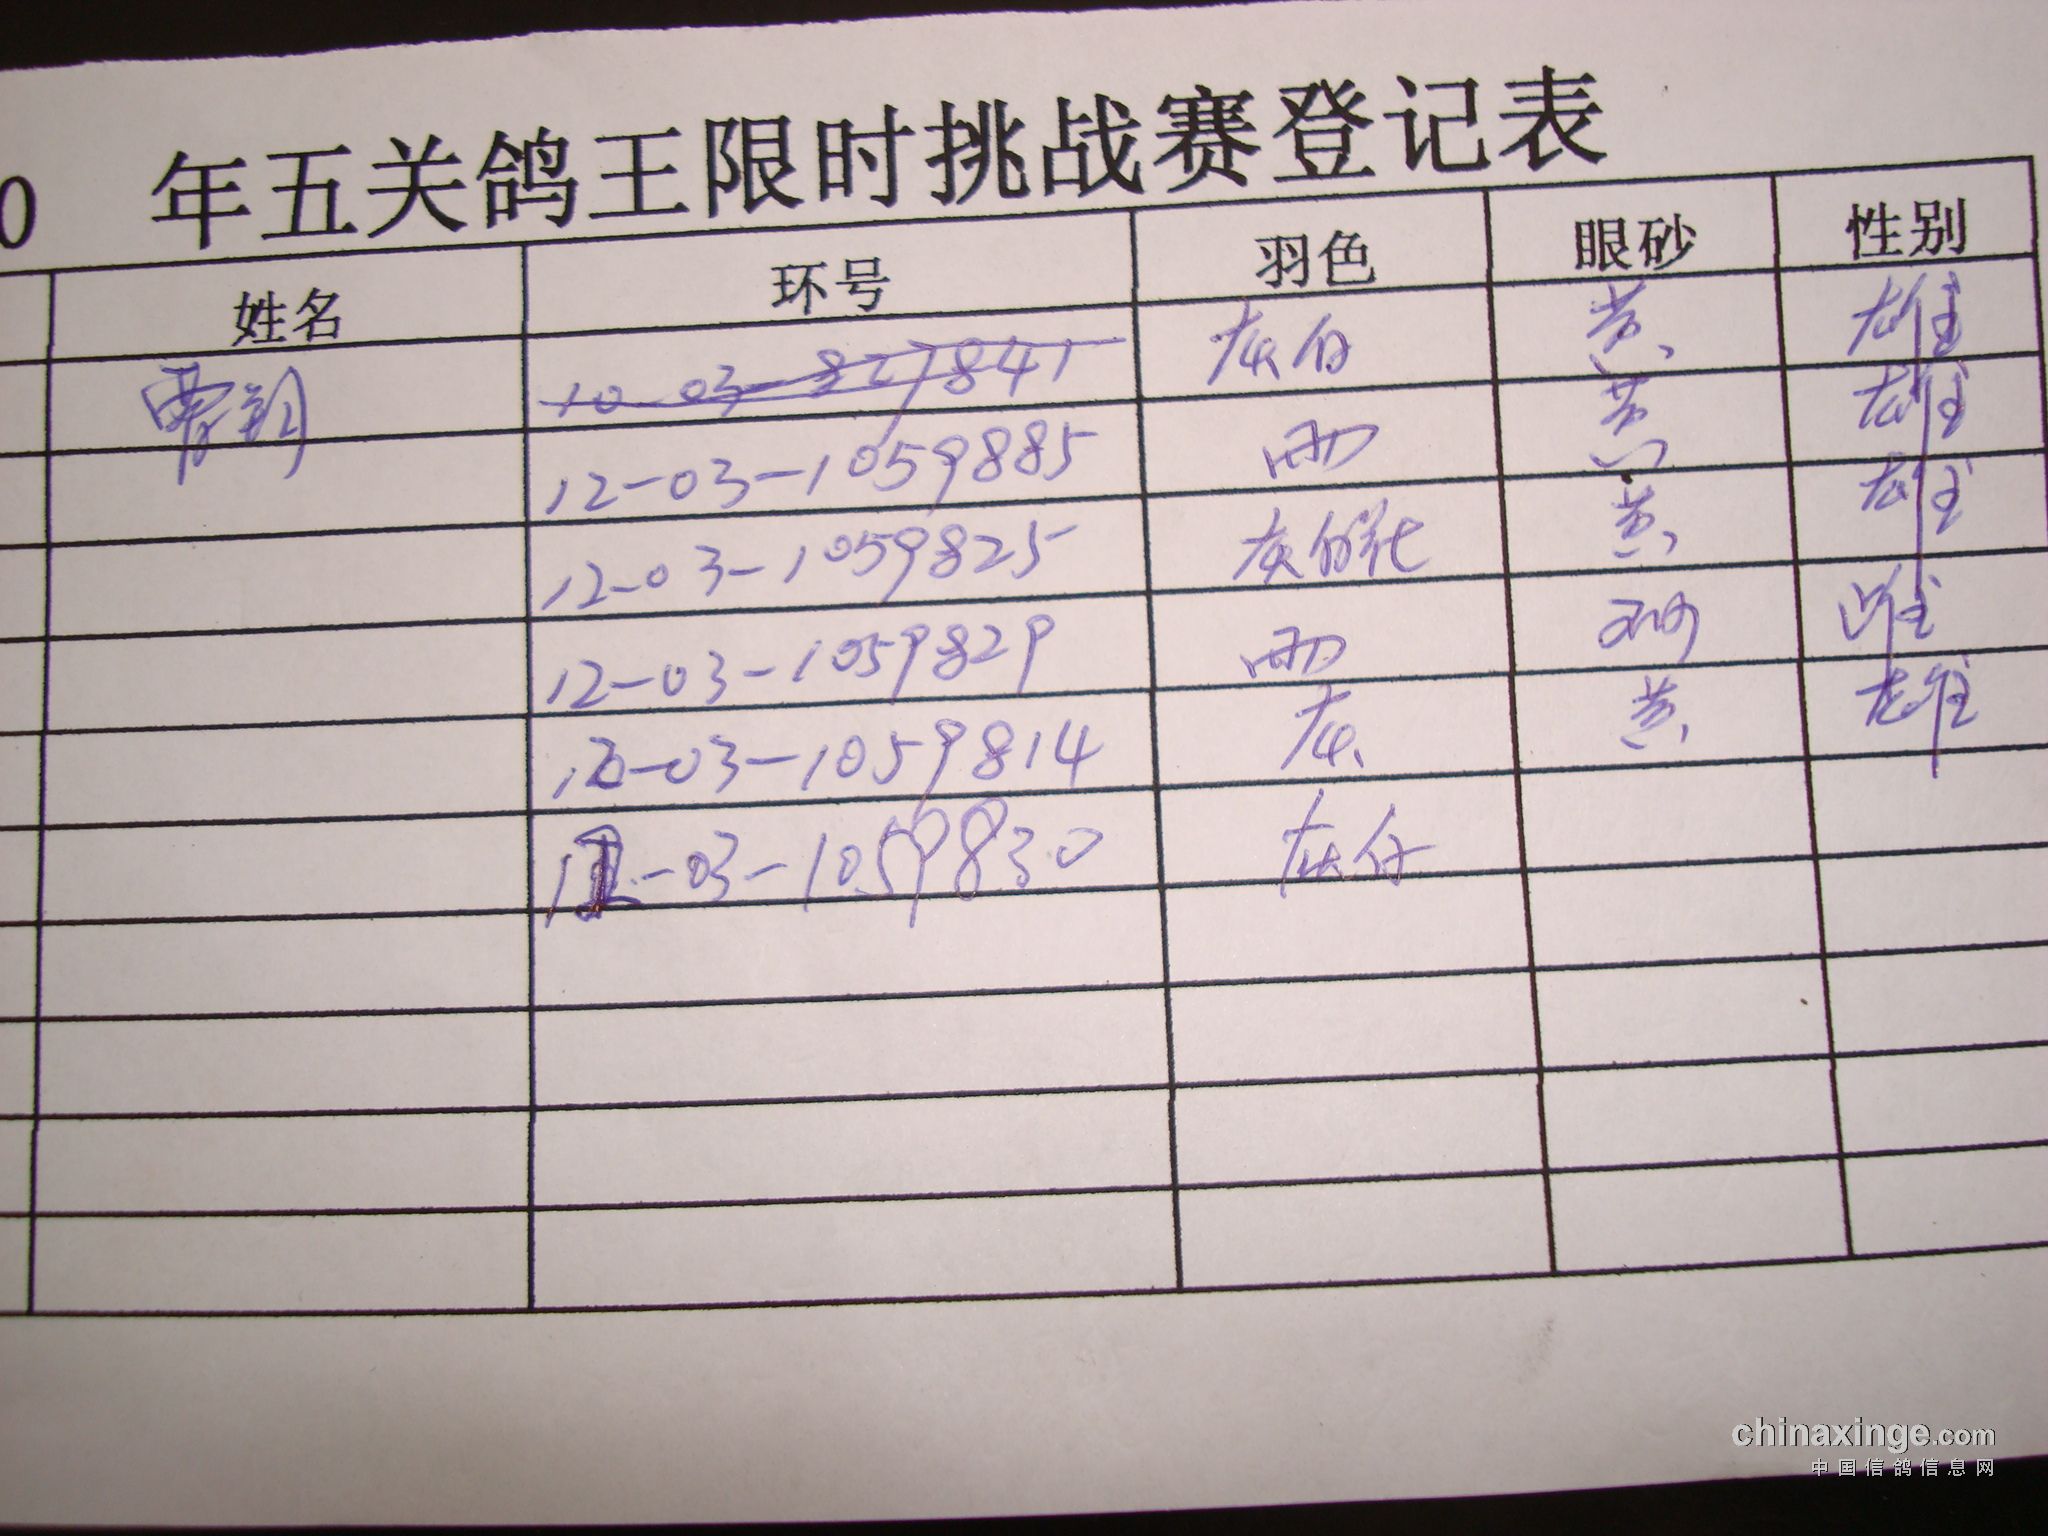 0 年五关鸽王限时挑战赛登记表
姓名 环号 羽色 眼砂 性别
10-03-827841 灰白 黄 雄
12-03-1059885 雨 黄 雄
12-03-1059825 灰白花 黄 雄
12-03-1059829 雨 砂 雌
12-03-1059814 灰 黄 雄
12-03-1059830 灰白
chinaxinge.com
中国信鸽信息网